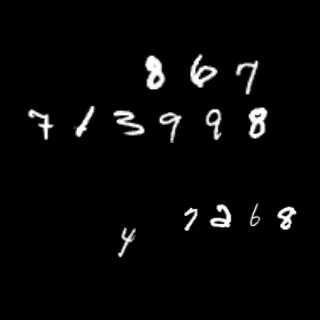 867
713998
7268
4